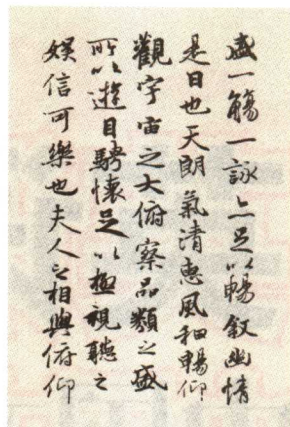 盛一觴一詠亦足以暢敘幽情
是日也天朗氣清惠風和暢仰
觀宇宙之大俯察品類之盛
所以遊目騁懷足以極視聽之
娛信可樂也夫人之相與俯仰